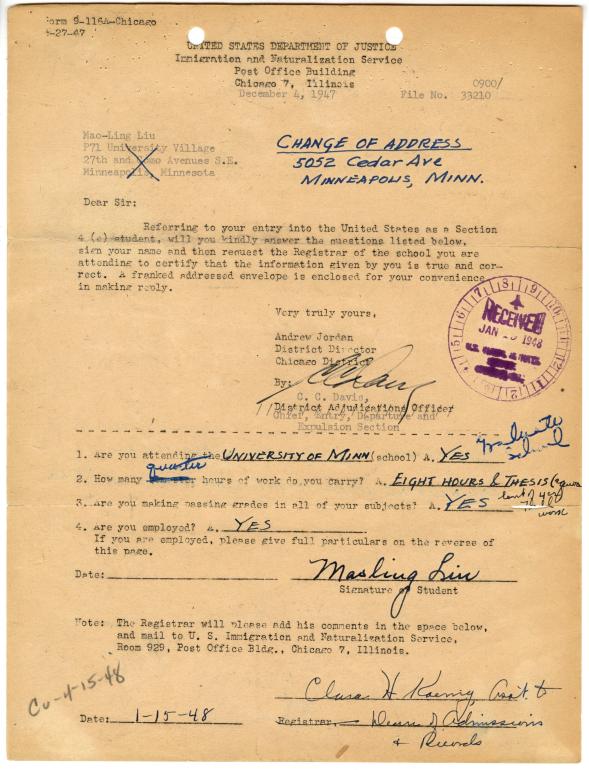 Form 9-116A-Chicago
-27-47
UNITED STATES DEPARTMENT OF JUSTICE
Immigration and Naturalization Service
Post Office Building
Chicago 7, Illinois
December 4, 1947
0900/
File No. 33210
Mao-Ling Liu
P71 University Village
27th and Como Avenues S.E.
Minneapolis, Minnesota
CHANGE OF ADDRESS
5052 Cedar Ave
MINNEAPOLIS, MINN.
Dear Sir:
Referring to your entry into the United States as a Section
4 (e) student, will you kindly answer the questions listed below,
sign your name and then request the Registrar of the school you are
attending to certify that the information given by you is true and cor-
rect. A franked addressed envelope is enclosed for your convenience
in making reply.
Very truly yours,
Andrew Jordan
District Director
Chicago District
By:
C. C. Davis,
District Adjudications Officer
Chief, Entry, Departure and
Expulsion Section
RECEIVED
JAN 1948
1. Are you attending the UNIVERSITY OF MINN (school) A. YES Graduate School
2. How many quarter hours of work do you carry? A. EIGHT HOURS & THESIS (equiva
lent of 4 gr
3. Are you making passing grades in all of your subjects? A. YES
work
4. Are you employed? A. YES
If you are employed, please give full particulars on the reverse of
this page.
Date: Maoling Liu
Signature of Student
Note: The Registrar will please add his comments in the space below,
and mail to U. S. Immigration and Naturalization Service,
Room 929, Post Office Bldg., Chicago 7, Illinois.
Cu-4-15-48
Clara H Koenig, Asst. to
Date: 1-15-48 Registrar. Dean of Admissions
& Records